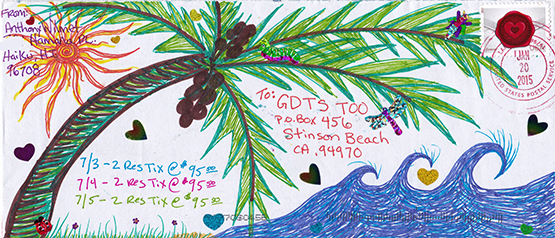 From:
Anthony Nimet
Hamana Pl.
Haiku, HI
96708
To:
GDTS TOO
P.O. Box 456
Stinson Beach
CA, 94970
JAN
20
2015
UNITED STATES POSTAL SERVICE
7/3 - 2 Res Tix @ $95.00
7/4 - 2 Res Tix @ $95.00
7/5 - 2 Res Tix @ $95.00